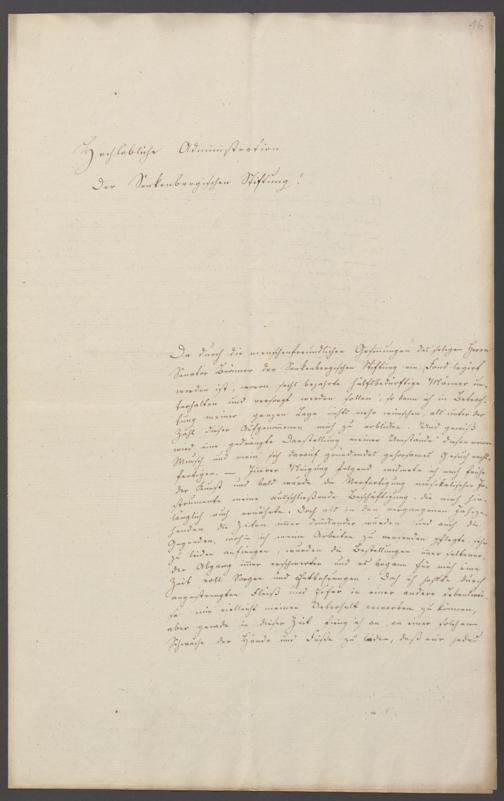 16
Hochlöbliche Administration
Der Senkenbergischen Stiftung!
Da durch die menschenfreundlichen Gesinnungen des seligen Herrn
Senator Brönner der Senkenbergischen Stiftung ein Fond legirt
worden ist, wovon sechs bejahrte hülfsbedürftige Männer un-
terhalten und verpflegt werden sollen; so kann ich in Betrach-
tung meiner ganzen Lage nichts mehr wünschen, als unter der
Zahl dieser Aufgenommenen mich zu erblicken. Und gewiß
wird eine gedrängte Darstellung meiner Umstände diesen meinen
Wunsch und mein sich darauf gründendes gehorsames Gesuch recht-
fertigen. — Innerer Neigung folgend widmete ich mich frühe
der Kunst und bald wurde die Verfertigung musikalischer In-
strumente meine ausschließende Beschäftigung, die mich hin-
länglich auch ernährte. Doch als in den vergangenen Jahrze-
henden die Zeiten immer drückender wurden und auch die
Gegenden, wohin ich meine Arbeiten zu versenden pflegte, sehr
zu leiden anfiengen, wurden die Bestellungen immer seltener,
der Abgang immer erschwerter und es begann für mich eine
Zeit voll Sorgen und Entbehrungen. Doch ich hoffte durch
angestrengten Fleiß und Eifer in einer andern Lebenswei-
se mir vielleicht meinen Unterhalt erwerben zu können,
aber gerade in dieser Zeit fieng ich an, an einer solchen
Schwäche der Hände und Füße zu leiden, daß mir jedes